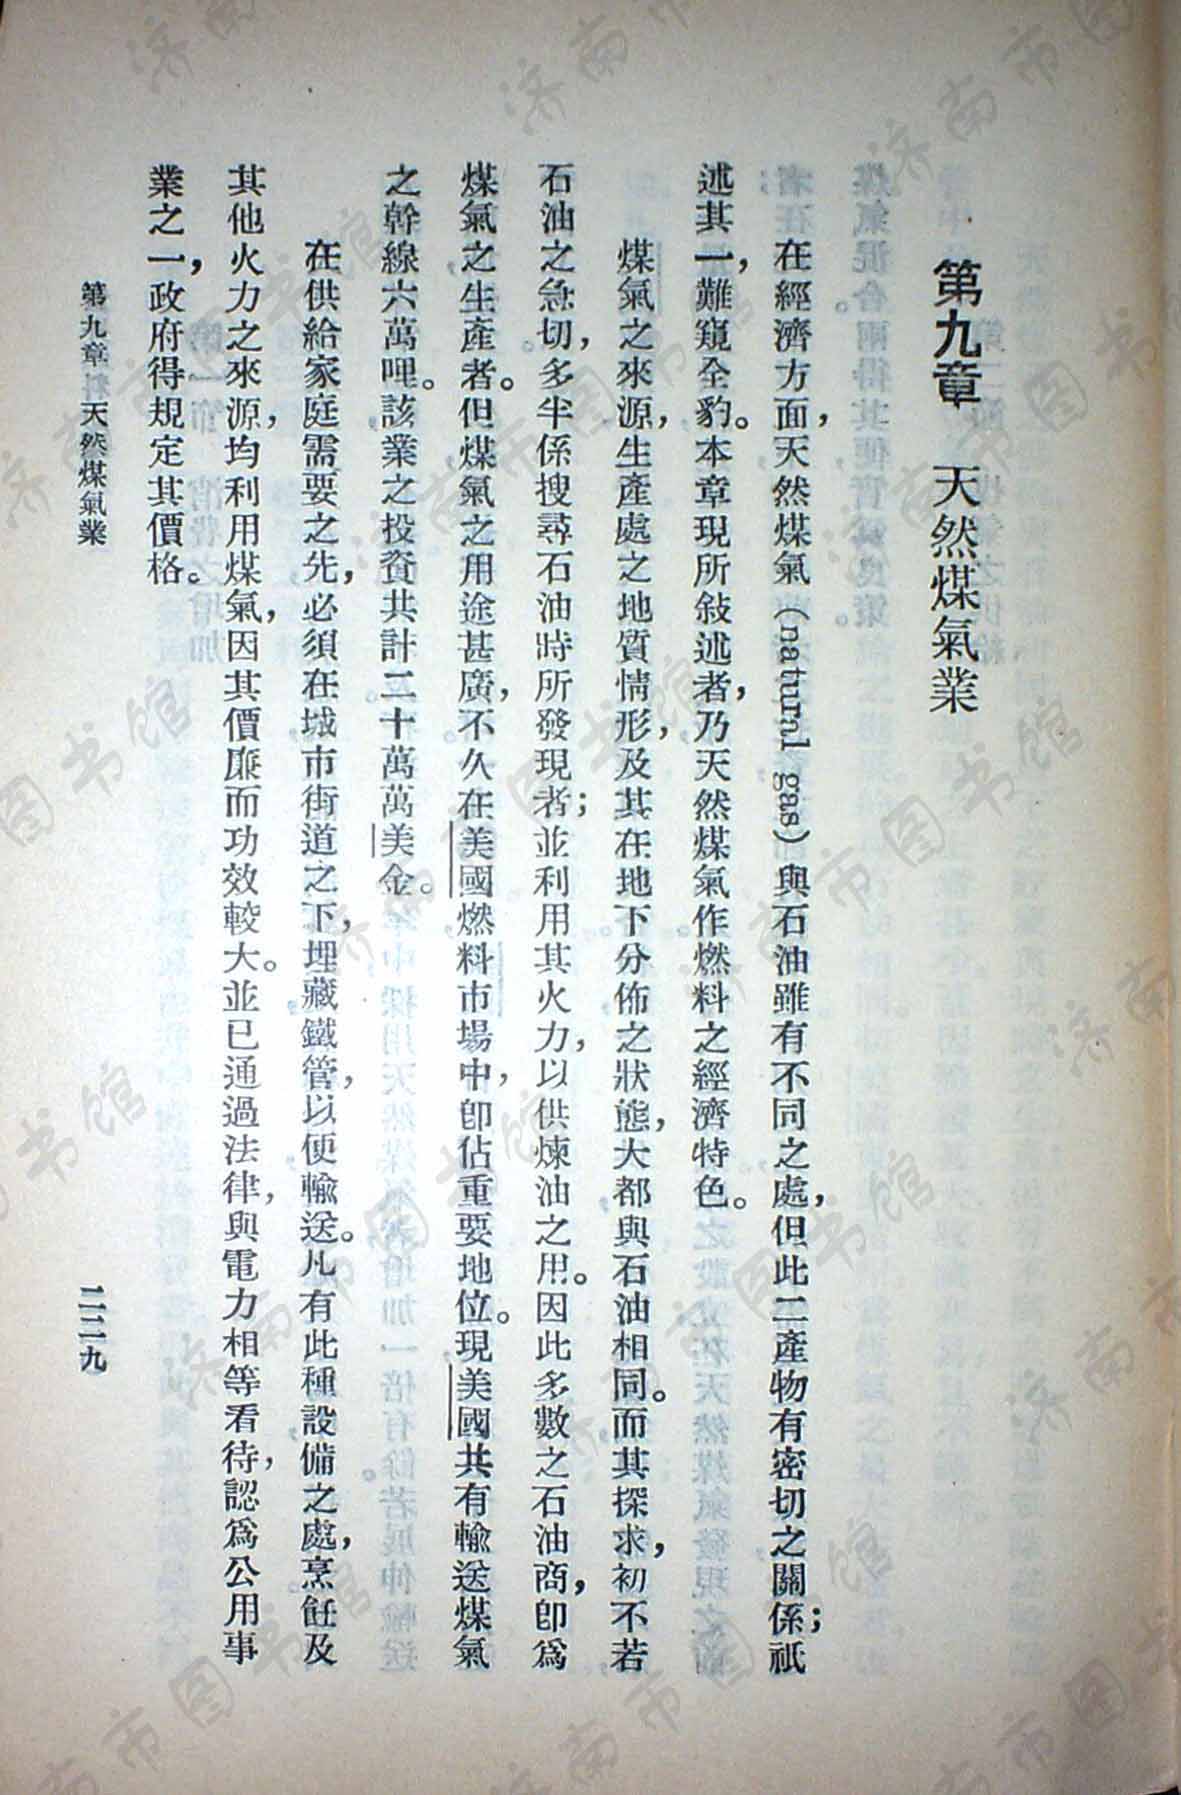 第九章　天然煤氣業
在經濟方面，天然煤氣（naturnl gas）與石油雖有不同之處，但此二產物有密切之關係；祇
述其一，難窺全豹。本章現所敍述者，乃天然煤氣作燃料之經濟特色。
煤氣之來源，生產處之地質情形，及其在地下分佈之狀態，大都與石油相同。而其探求，初不若
石油之急切，多半係搜尋石油時所發現者；並利用其火力，以供煉油之用。因此多數之石油商，卽爲
煤氣之生產者。但煤氣之用途甚廣，不久在美國燃料市場中，卽佔重要地位。現美國共有輸送煤氣
之幹線六萬哩。該業之投資共計二十萬萬美金。
在供給家庭需要之先，必須在城市街道之下，埋藏鐵管，以便輸送。凡有此種設備之處，烹飪及
其他火力之來源，均利用煤氣，因其價廉而功效較大。並已通過法律，與電力相等看待，認爲公用事
業之一，政府得規定其價格。
第九章　天然煤氣業
二二九
济南市图书馆